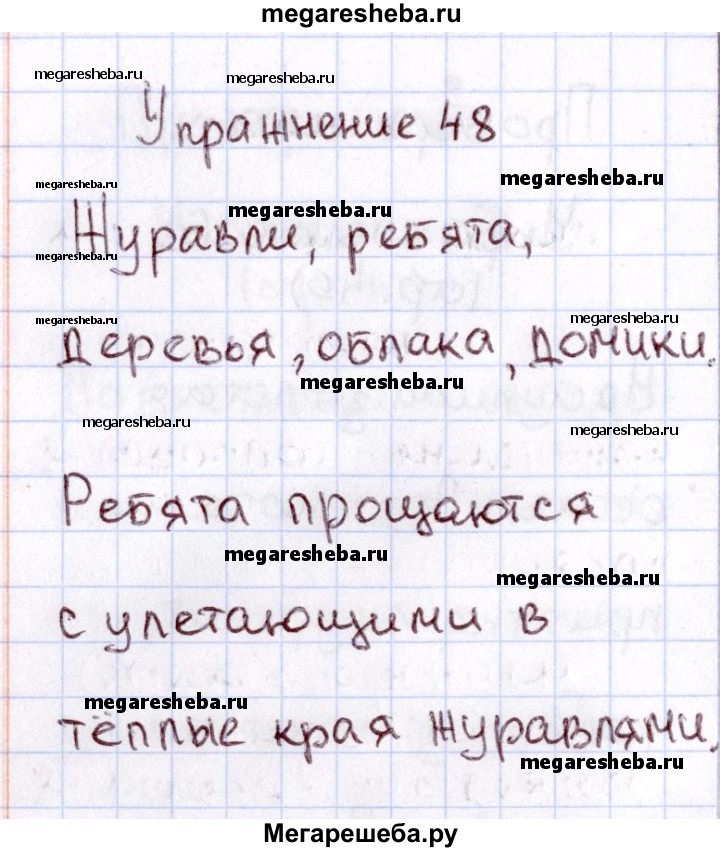 megaresheba.ru
megaresheba.ru megaresheba.ru
Упражнение 48
megaresheba.ru
megaresheba.ru
megaresheba.ru
Журавли, ребята,
megaresheba.ru
megaresheba.ru
megaresheba.ru
деревья, облака, домики.
megaresheba.ru
megaresheba.ru
megaresheba.ru
Ребята прощаются
megaresheba.ru
megaresheba.ru
с улетающими в
megaresheba.ru
тёплые края журавлями.
megaresheba.ru
Мегарешеба.ру